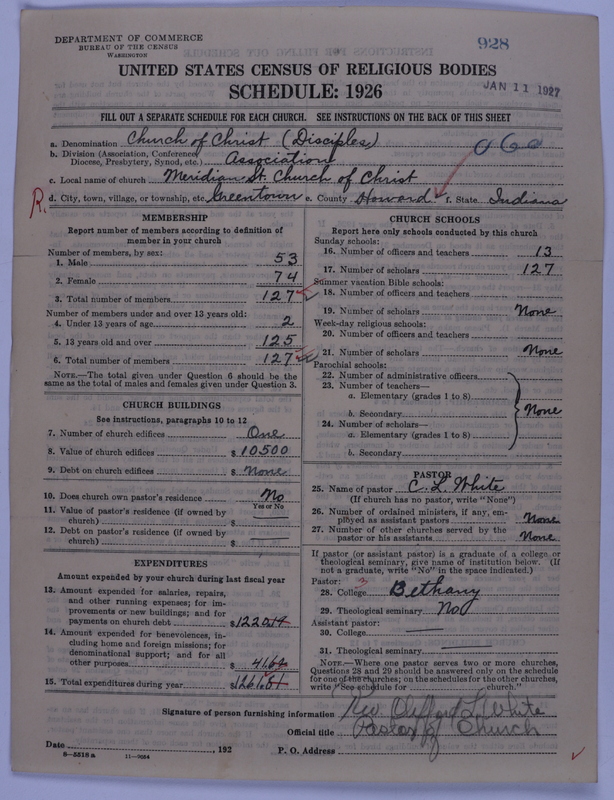 DEPARTMENT OF COMMERCE
BUREAU OF THE CENSUS
WASHINGTON
928
UNITED STATES CENSUS OF RELIGIOUS BODIES
SCHEDULE: 1926
JAN 11 1927
FILL OUT A SEPARATE SCHEDULE FOR EACH CHURCH. SEE INSTRUCTIONS ON THE BACK OF THIS SHEET
a. Denomination Church of Christ (Disciples)
060
b. Division (Association, Conference,
Diocese, Presbytery, Synod, etc.) Association
c. Local name of church Meridian St. Church of Christ
R. d. City, town, village, or township, etc. Greentown e. County Howard f. State Indiana
MEMBERSHIP
Report number of members according to definition of
member in your church
Number of members, by sex:
1. Male 53
2. Female 74
3. Total number of members 127
Number of members under and over 13 years old:
4. Under 13 years of age 2
5. 13 years old and over 125
6. Total number of members 127
NOTE.—The total given under Question 6 should be the
same as the total of males and females given under Question 3.
CHURCH BUILDINGS
See instructions, paragraphs 10 to 12
7. Number of church edifices One
8. Value of church edifices $ 10500
9. Debt on church edifices $ None
10. Does church own pastor's residence No
Yes or No
11. Value of pastor's residence (if owned by
church) $
12. Debt on pastor's residence (if owned by
church) $
EXPENDITURES
Amount expended by church during last fiscal year
13. Amount expended for salaries, repairs,
and other running expenses; for im-
provements or new buildings; and for
payments on church debt $
14. Amount expended for benevolences, in-
cluding home and foreign missions; for
denominational support; and for all
other purposes $
15. Total expenditures during year $
CHURCH SCHOOLS
Report here only schools conducted by this church
Sunday schools:
16. Number of officers and teachers 13
17. Number of scholars 127
Summer vacation Bible schools:
18. Number of officers and teachers
19. Number of scholars None
Week-day religious schools:
20. Number of officers and teachers
21. Number of scholars None
Parochial schools:
22. Number of administrative officers
23. Number of teachers—
a. Elementary (grades 1 to 8)
b. Secondary None
24. Number of scholars—
a. Elementary (grades 1 to 8)
b. Secondary
PASTOR
25. Name of pastor C. L. White
(If church has no pastor, write "None")
26. Number of ordained ministers, if any, em-
ployed as assistant pastors None
27. Number of other churches served by the
pastor or his assistants None
If pastor (or assistant pastor) is a graduate of a college or
theological seminary, give name of institution below. (If
not a graduate, write "No" in the space indicated.)
Pastor: 3
28. College Bethany
29. Theological seminary No
Assistant pastor:
30. College
31. Theological seminary
NOTE.—Where one pastor serves two or more churches,
Questions 28 and 29 should be answered only on the schedule
for one of the churches; on the schedules for the other churches,
write "See schedule for church."
Signature of person furnishing information Rev. Clifford L. White
Official title Pastor of Church
Date , 192
P. O. Address
8—5518 a
11—9664